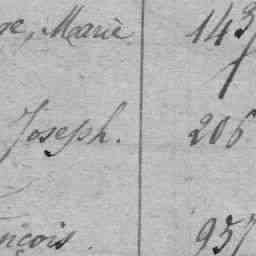 se, Marie 143
Joseph. 206
nçois. 957